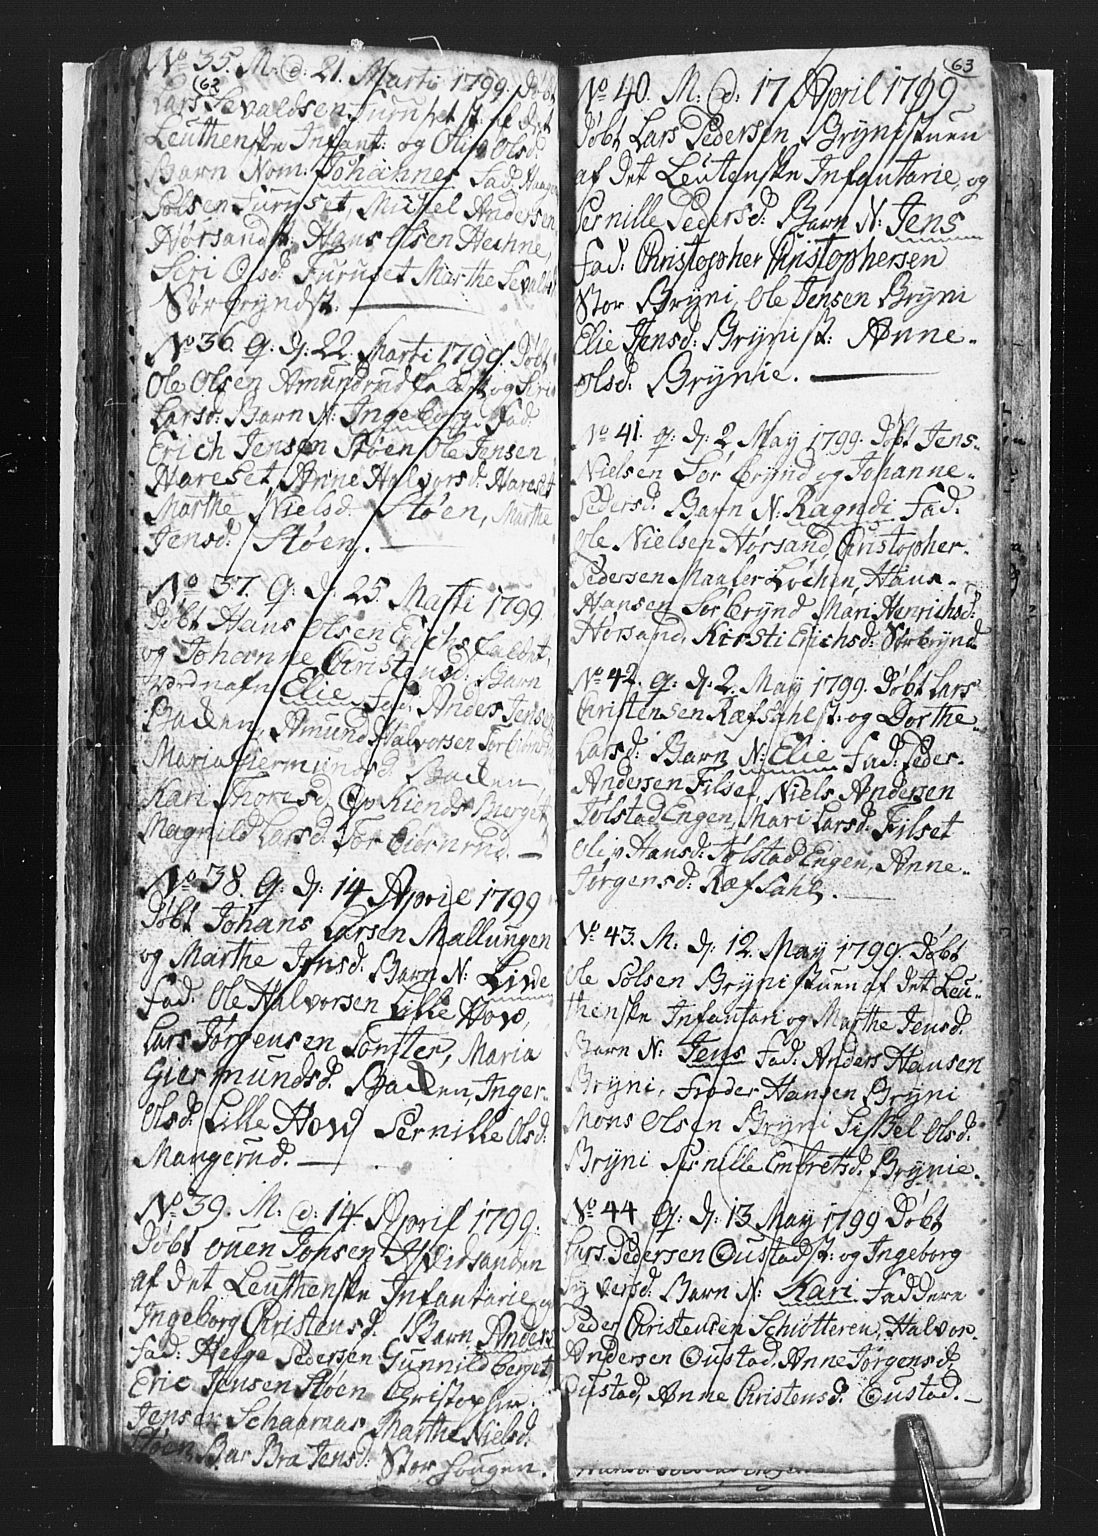 62
No 35. M. d. 21. Marti 1799. Døbt
Lars Sevaldsen Furuset st: af det
Leuthenske Infant: og Oliv Olsd:
Barn Nom. Johannes Fad:
Furuset, Michel Andersen
Horsand Hans Olsen Hechne,
Siri Olsd: Furuset Marthe Sevalds
Sørbryndst.
No 36. Q. D. 22. Marti 1799. Døbt
Ole Olsen Amundrud og Siri
Larsd: Barn N: Ingeborg. Fad:
Erich Jensen Støen Ole Jensen
Hareset, Anne Halvorsd: Hareset
Marthe Nielsd. Støen, Marthe
Jensd: Støen.
No 37. Q. D. 25. Marti 1799.
Døbt Hans Olsen
og Johanne Christensd: Barn
Elie Fad: Anders Jensen
Baden, Amund Halvorsen
Maria Giermundsd. Baden,
Kari Thoresd.
Magnild Larsd.
No 38. Q: D: 14 April 1799
Døbt Johans Larsen Mallungen
og Marthe Jensd. Barn N: Livde
Fad: Ole Halvorsen Lille Hove,
Lars Jørgensen Sønster, Maria
Giermundsd. Baden, Inger
Olsd: Lille Hov, Pernille Olsd:
Mangerud.
No 39. M. d. 14. April 1799.
Døbt ouen Johsen
af det Leuthenske Infantarie og
Ingeborg Christensd. Barn Anders
Fad: Helge Pedersen Gunnildberget
Eric Jensen Støen Christopher
Jensen Schaaraas Marthe Nielsd:
Støen Bar Bra Jensd: Stor Lougen.
63
No 40. M: d: 17 April 1799
Døbt Lars Pedersen Brynistuen
af det Leutenske Infantarie, og
Pernille Pedersd: Barn N: Jens
Fad: Christopher Christophersen
Stor Bryni, Ole Jensen Bryni
Elie Jensd: Brynist: Anne
olsd: Brynie.
No 41. q: D: 2. May 1799. Døbt Jens
Nielsen Sørbrynd og Johanne
Pedersd: Barn N: Ragndi Fad:
Ole Nielsen Horsand, Christopher
Pedersen Løchen, Hans
Hansen Sørbrynd Mari Henrichsd:
Horsand, Kirsti Erichsd: Sørbrynd
No 42. q: D: 2. May 1799. Døbt Lars
Christensen Ræfsahlst: og Dorthe
Larsd: Barn N: Elie Fad: Peder
Andersen Filset, Niels Andersen
Tølstad Engen, Mari Larsd: Filset
Oliv Hansd: Tølstad Engen, Anne
Jørgensd: Ræfsahl.
No 43. M: D: 12. May 1799. Døbt
Ole Polsen Brynistuen af det Leu-
thenske Infantari og Marthe Jensd:
Barn N: Jens Fad: Anders Hansen
Bryni, Frøder Hansen Bryni
Mons Olsen Bryni Sissel Olsd:
Bryni Pernille Embretsd: Brynie.
No 44 q: D: 13 May 1799 Døbt
Lars Pedersen Oustadst: og Ingeborg
Syversd: Barn N: Kari Faddere
Peder Christensen Schiøtteren, Halvor
Andersen Oustad, Anne Jørgensd:
Oustad, Anne Christensd: Oustad.